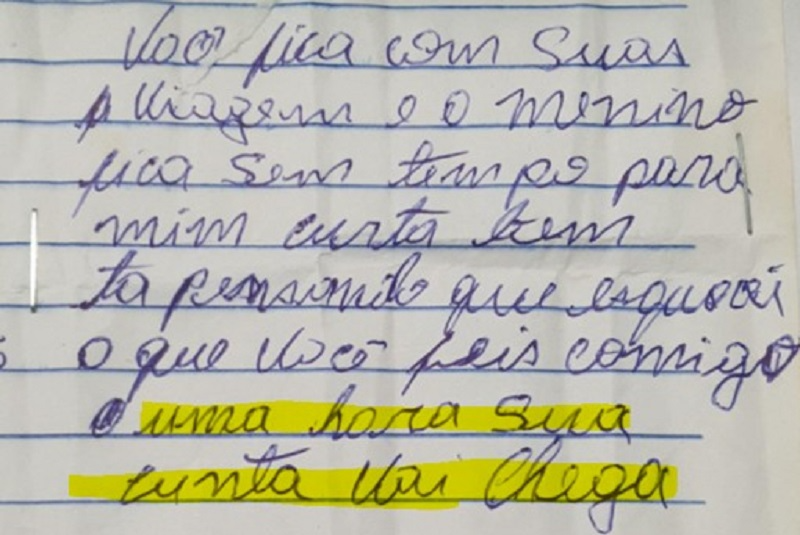 Você fica com suas
viagem e o menino
fica sem tempo para
mim curta bem
ta pensando que esqueci
o que você feis comigo
uma hora sua
cunta vai chega